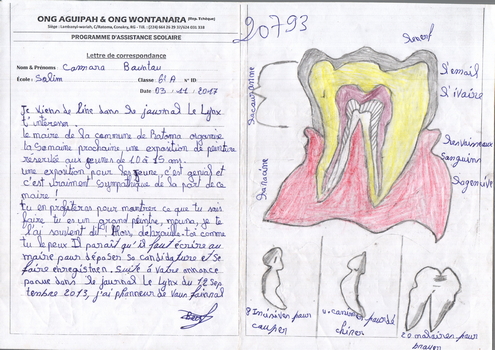 ONG AGUIPAH & ONG WONTANARA (Rép. Tchèque)
Siège : Lambanyi-waziah, C/Ratoma, Conakry, RG -
PROGRAMME D'ASSISTANCE SCOLAIRE
Lettre de correspondance
Nom & Prénoms Camara Bountou
École : Salim Classe : 6è A N° ID:
Date : 03 . 11 . 2017
Je viens de lire dans le journal Le Lynx
t'interesser.
le maire de la commune de Ratoma organise
la semaine prochaine, une exposition de peinture
reservée aux jeunes de 10 à 15 ans.
une exposition pour les jeune, c'est genial et
c'est vraiment sympathique de la part de ce
maire!
Tu en profiteras pour montrer ce que tu sais
faire tu es un grand peintre, mouna, je te
l'ai souvient dit! Alors débrouille-toi comme
tu le peux Il parait qu'il faut écrire au
maire pour déposer sa candidature et se
faire enregistrer, Suite à votre annonce
parue dans le journal Le Lynx du 12 Sep
tembre 2013, j'ai l'honneur de vous
20793
L'email
L'ivoire
Les vaisseaux
Sanguins
La gencive
La couronne
La racine
8 Incisives pour
couper
4 canines pour dé
chirer
20 molaires pour
broyer